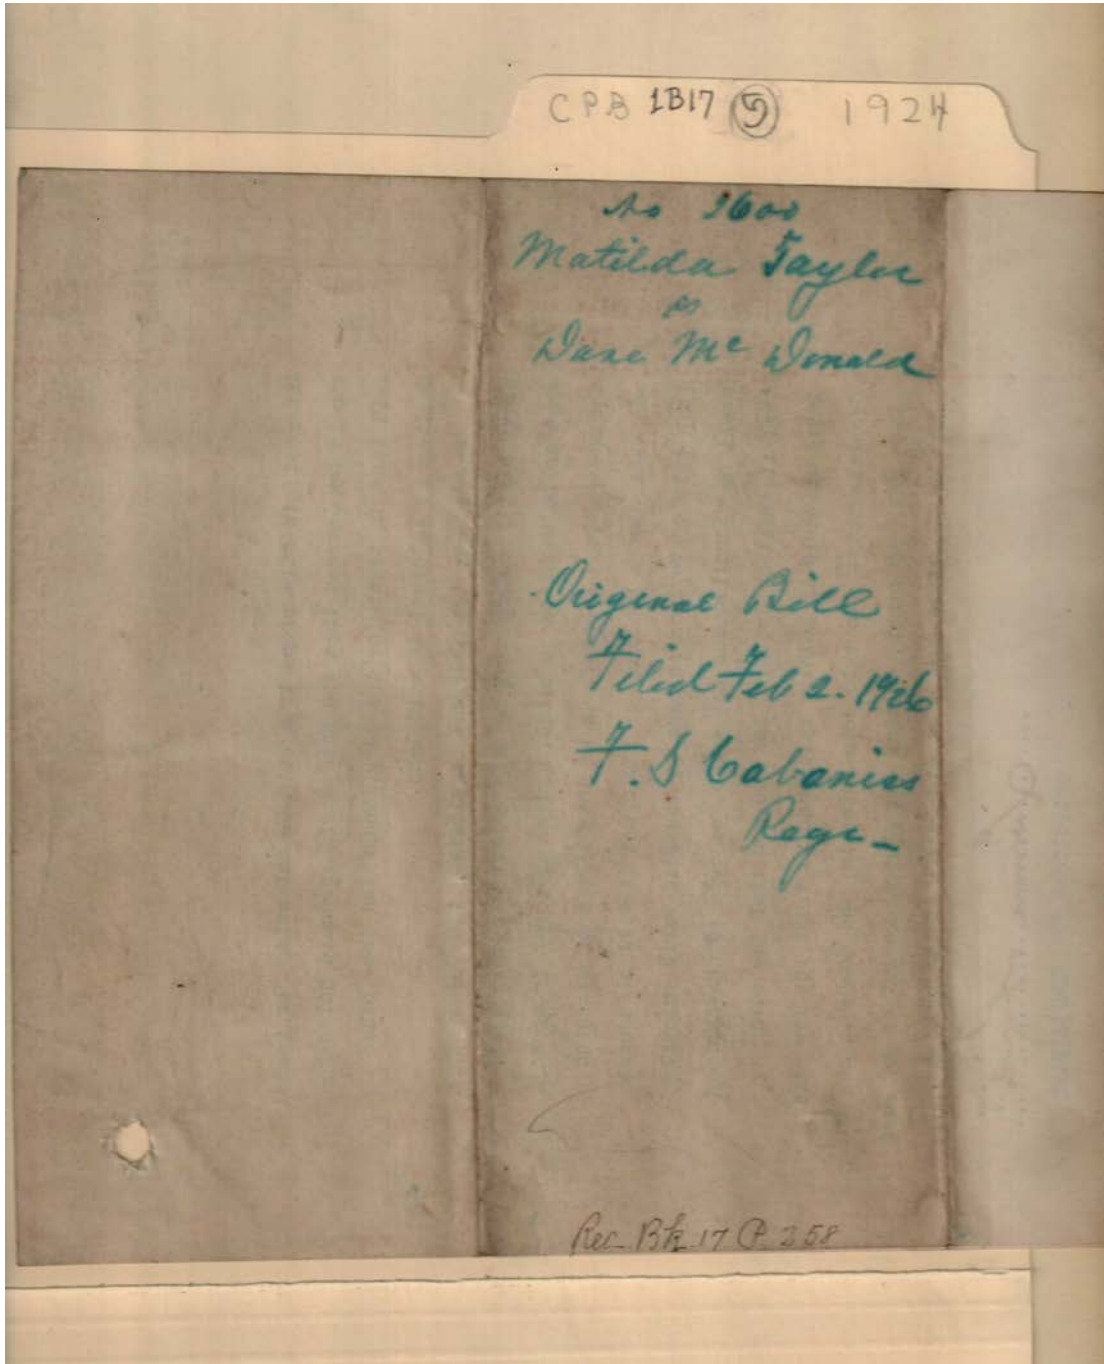 CPB 1B17 ⑤ 1924
No 2600
Matilda Taylor
vs
Dave Mc Donald
Original Bill
Filed Feb 2. 1926
F. S Cabaniss
Regr
Rec Bk 17 P. 358